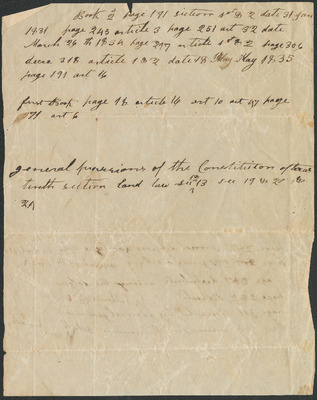 Book 2 page 191 section 1st & 2 date 31 jan
1831 page 243 article 3 page 251 art 32 date
March 26th 1834 page 247 article 1st & 2 page 306
decree 318 article 1 & 2 date 18 May 1835
page 191 art 16
first Book page 98 article 14 art 10 art 47 page
171 art 6
general provisions of the Constitution of texas
tenth section land law sec 13 sec 19 & 21 &
24